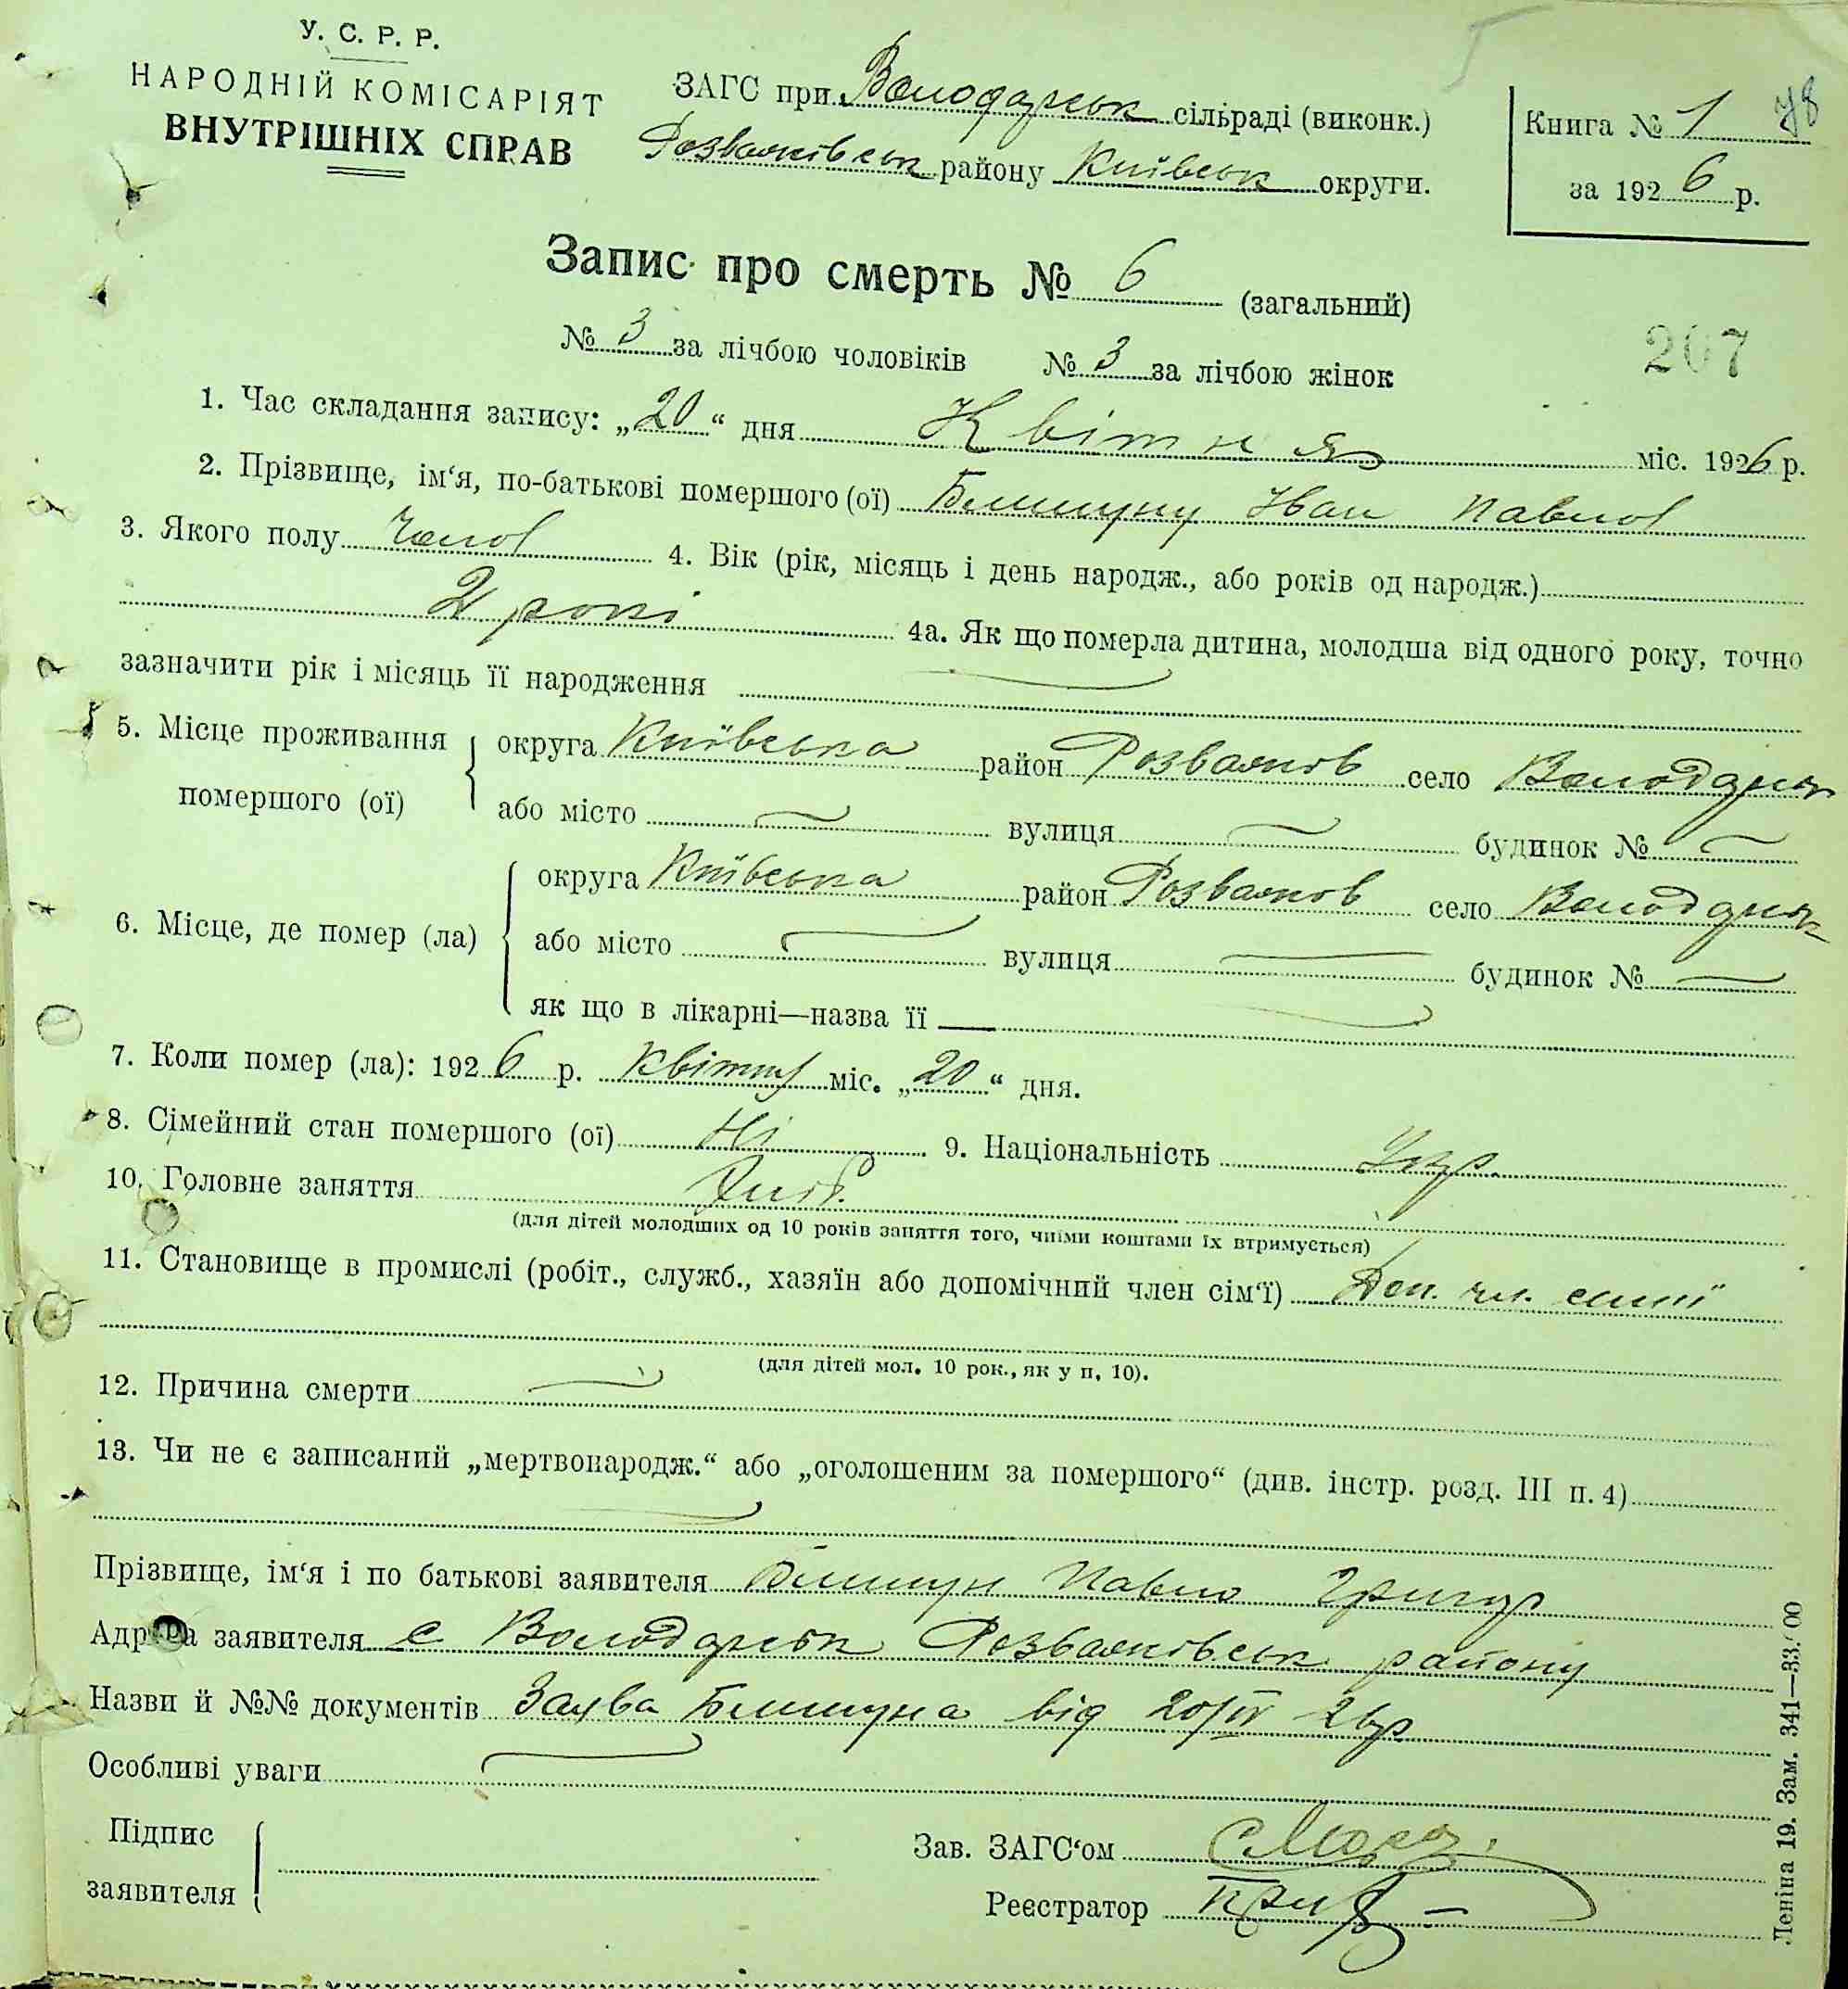 У. С. Р. Р.
НАРОДНІЙ КОМІСАРІЯТ
ВНУТРІШНІХ СПРАВ
ЗАГС при Володарськ сільраді (виконк.)
Розважівськ району Київськ округи.
Книга № 1 78
за 1926 р.
Запис про смерть № 6 (загальний)
№ 3 за лічбою чоловіків № 3 за лічбою жінок
207
1. Час складання запису: „20“ дня Квітня міс. 1926 р.
2. Прізвище, ім‘я, по-батькові помершого (ої) Іван Павлов
3. Якого полу Чолов 4. Вік (рік, місяць і день народж., або років од народж.)
2 рокі 4а. Як що померла дитина, молодша від одного року, точно
зазначити рік і місяць її народження
5. Місце проживання помершого (ої) округа Київська район Розважів село Володарськ
або місто вулиця будинок №
6. Місце, де помер (ла) округа Київська район Розважів село Володарськ
або місто вулиця будинок №
як що в лікарні—назва її
7. Коли помер (ла): 1926 р. Квітня міс. „20“ дня.
8. Сімейний стан помершого (ої) Ні 9. Національність Укр.
10. Головне заняття Хліб.
(для дітей молодших од 10 років заняття того, чиїми коштами їх втримується)
11. Становище в промислі (робіт., служб., хазяїн або допомічний член сім‘ї) Доп. чл. сим'ї
(для дітей мол. 10 рок., як у п. 10).
12. Причина смерти
13. Чи не є записаний „мертвонародж.“ або „оголошеним за помершого“ (див. інстр. розд. III п. 4)
Прізвище, ім‘я і по батькові заявителя Павло Григор
Адреса заявителя с Володарськ Розважівськ району
Назви й №№ документів Заява від 20/IV 26р
Особливі уваги
Підпис заявителя
Зав. ЗАГС‘ом
Реєстратор
Леніна 19. Зам. 341—33.00